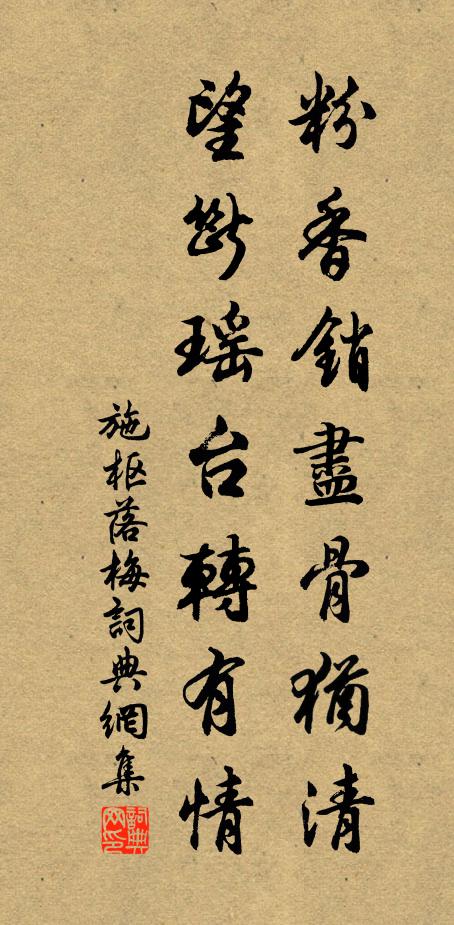 粉香銷盡骨猶清
望斷瑶台轉有情
施枢落梅詞典網集
詞典网印